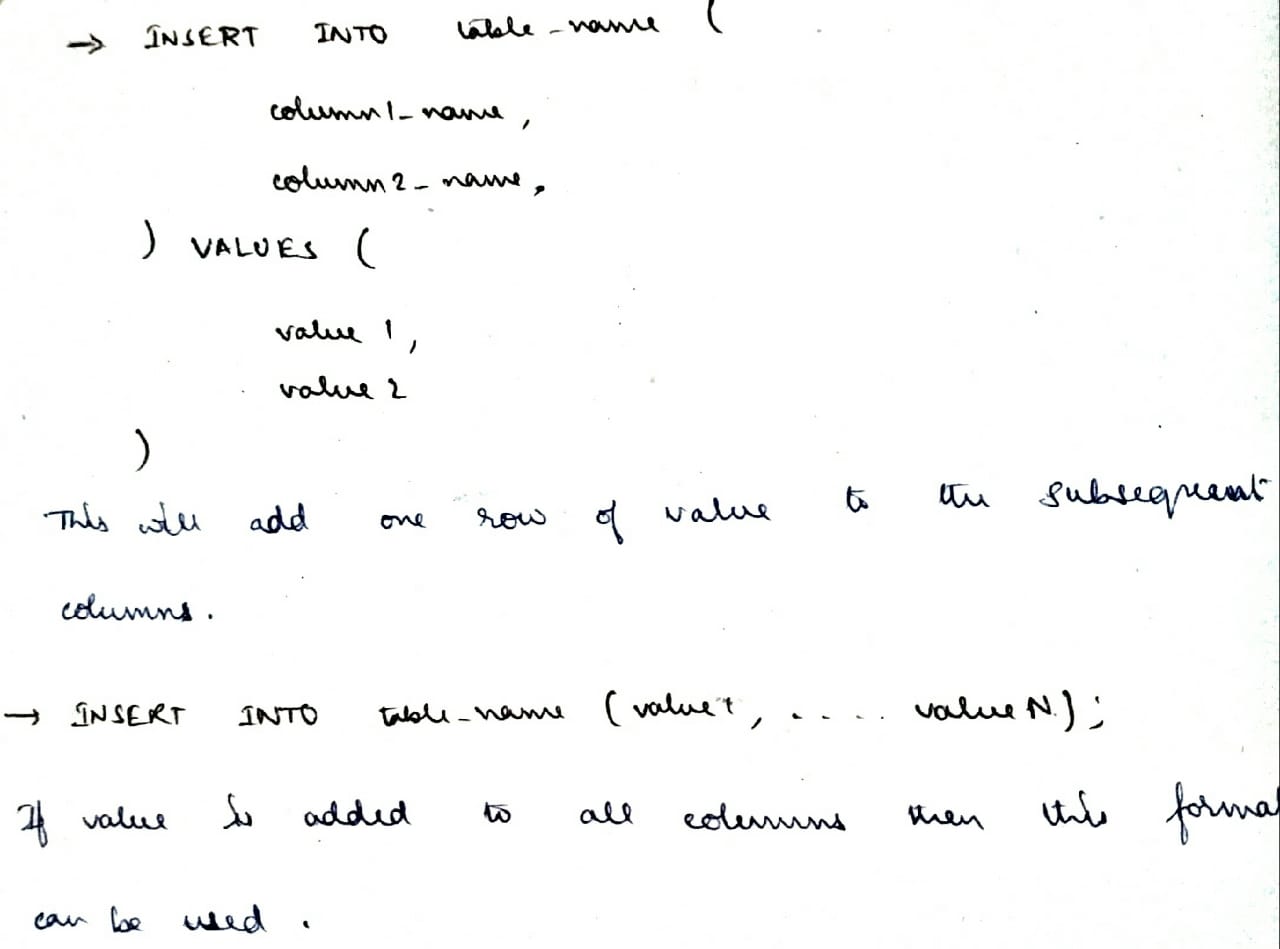 → INSERT INTO table_name (
column1_name,
column2_name,
) VALUES (
value 1,
value 2
)
This will add one row of value to the subsequent
columns.
→ INSERT INTO table_name (value1, ..... value N);
If value is added to all columns then this forma
can be used.